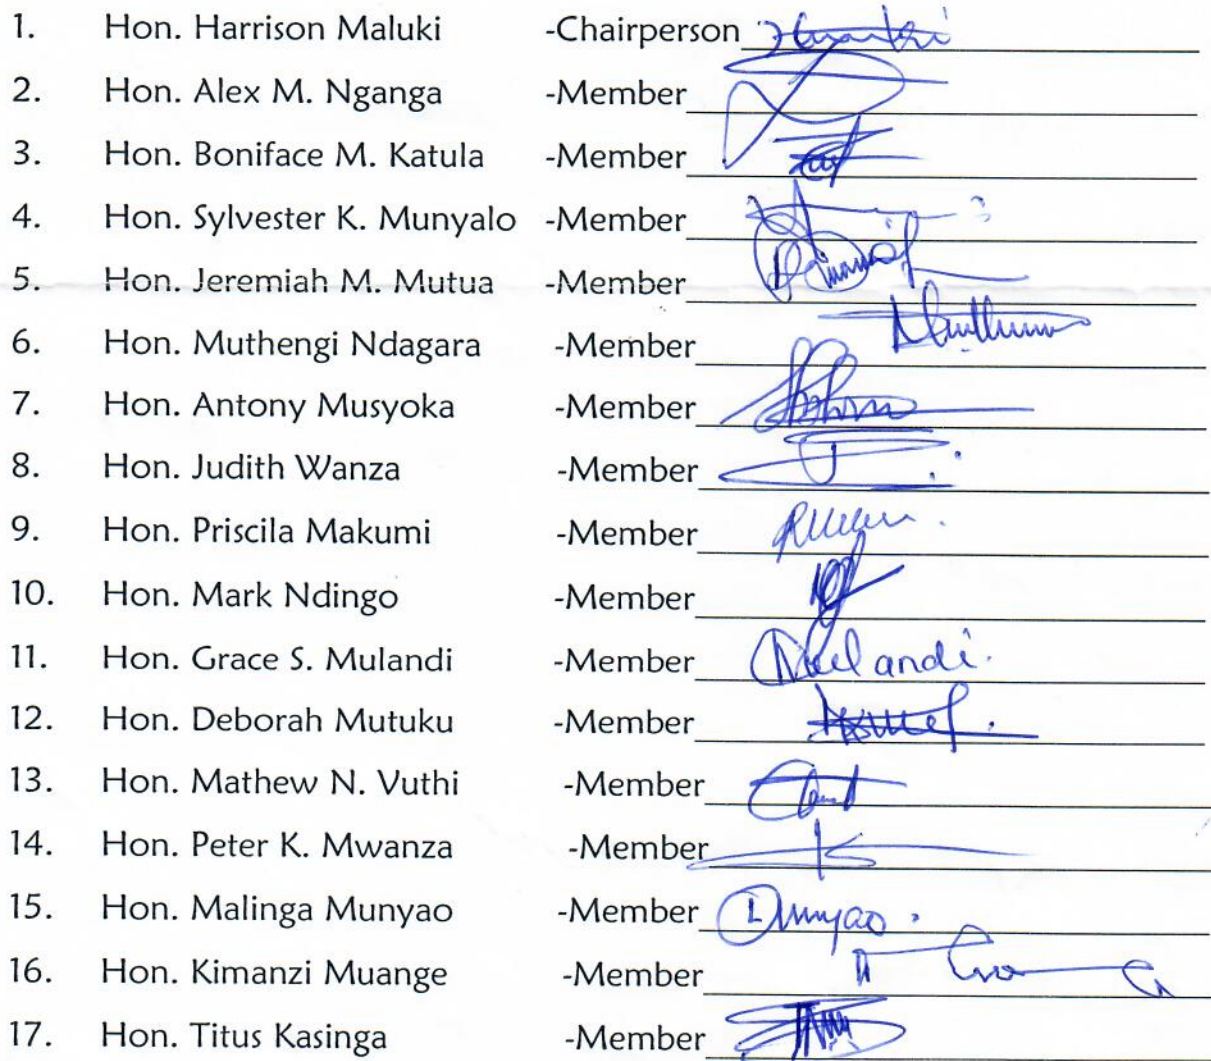 1. Hon. Harrison Maluki -Chairperson
2. Hon. Alex M. Nganga -Member
3. Hon. Boniface M. Katula -Member
4. Hon. Sylvester K. Munyalo -Member
5. Hon. Jeremiah M. Mutua -Member
6. Hon. Muthengi Ndagara -Member
7. Hon. Antony Musyoka -Member
8. Hon. Judith Wanza -Member
9. Hon. Priscila Makumi -Member
10. Hon. Mark Ndingo -Member
11. Hon. Grace S. Mulandi -Member Mulandi.
12. Hon. Deborah Mutuku -Member
13. Hon. Mathew N. Vuthi -Member
14. Hon. Peter K. Mwanza -Member
15. Hon. Malinga Munyao -Member
16. Hon. Kimanzi Muange -Member
17. Hon. Titus Kasinga -Member